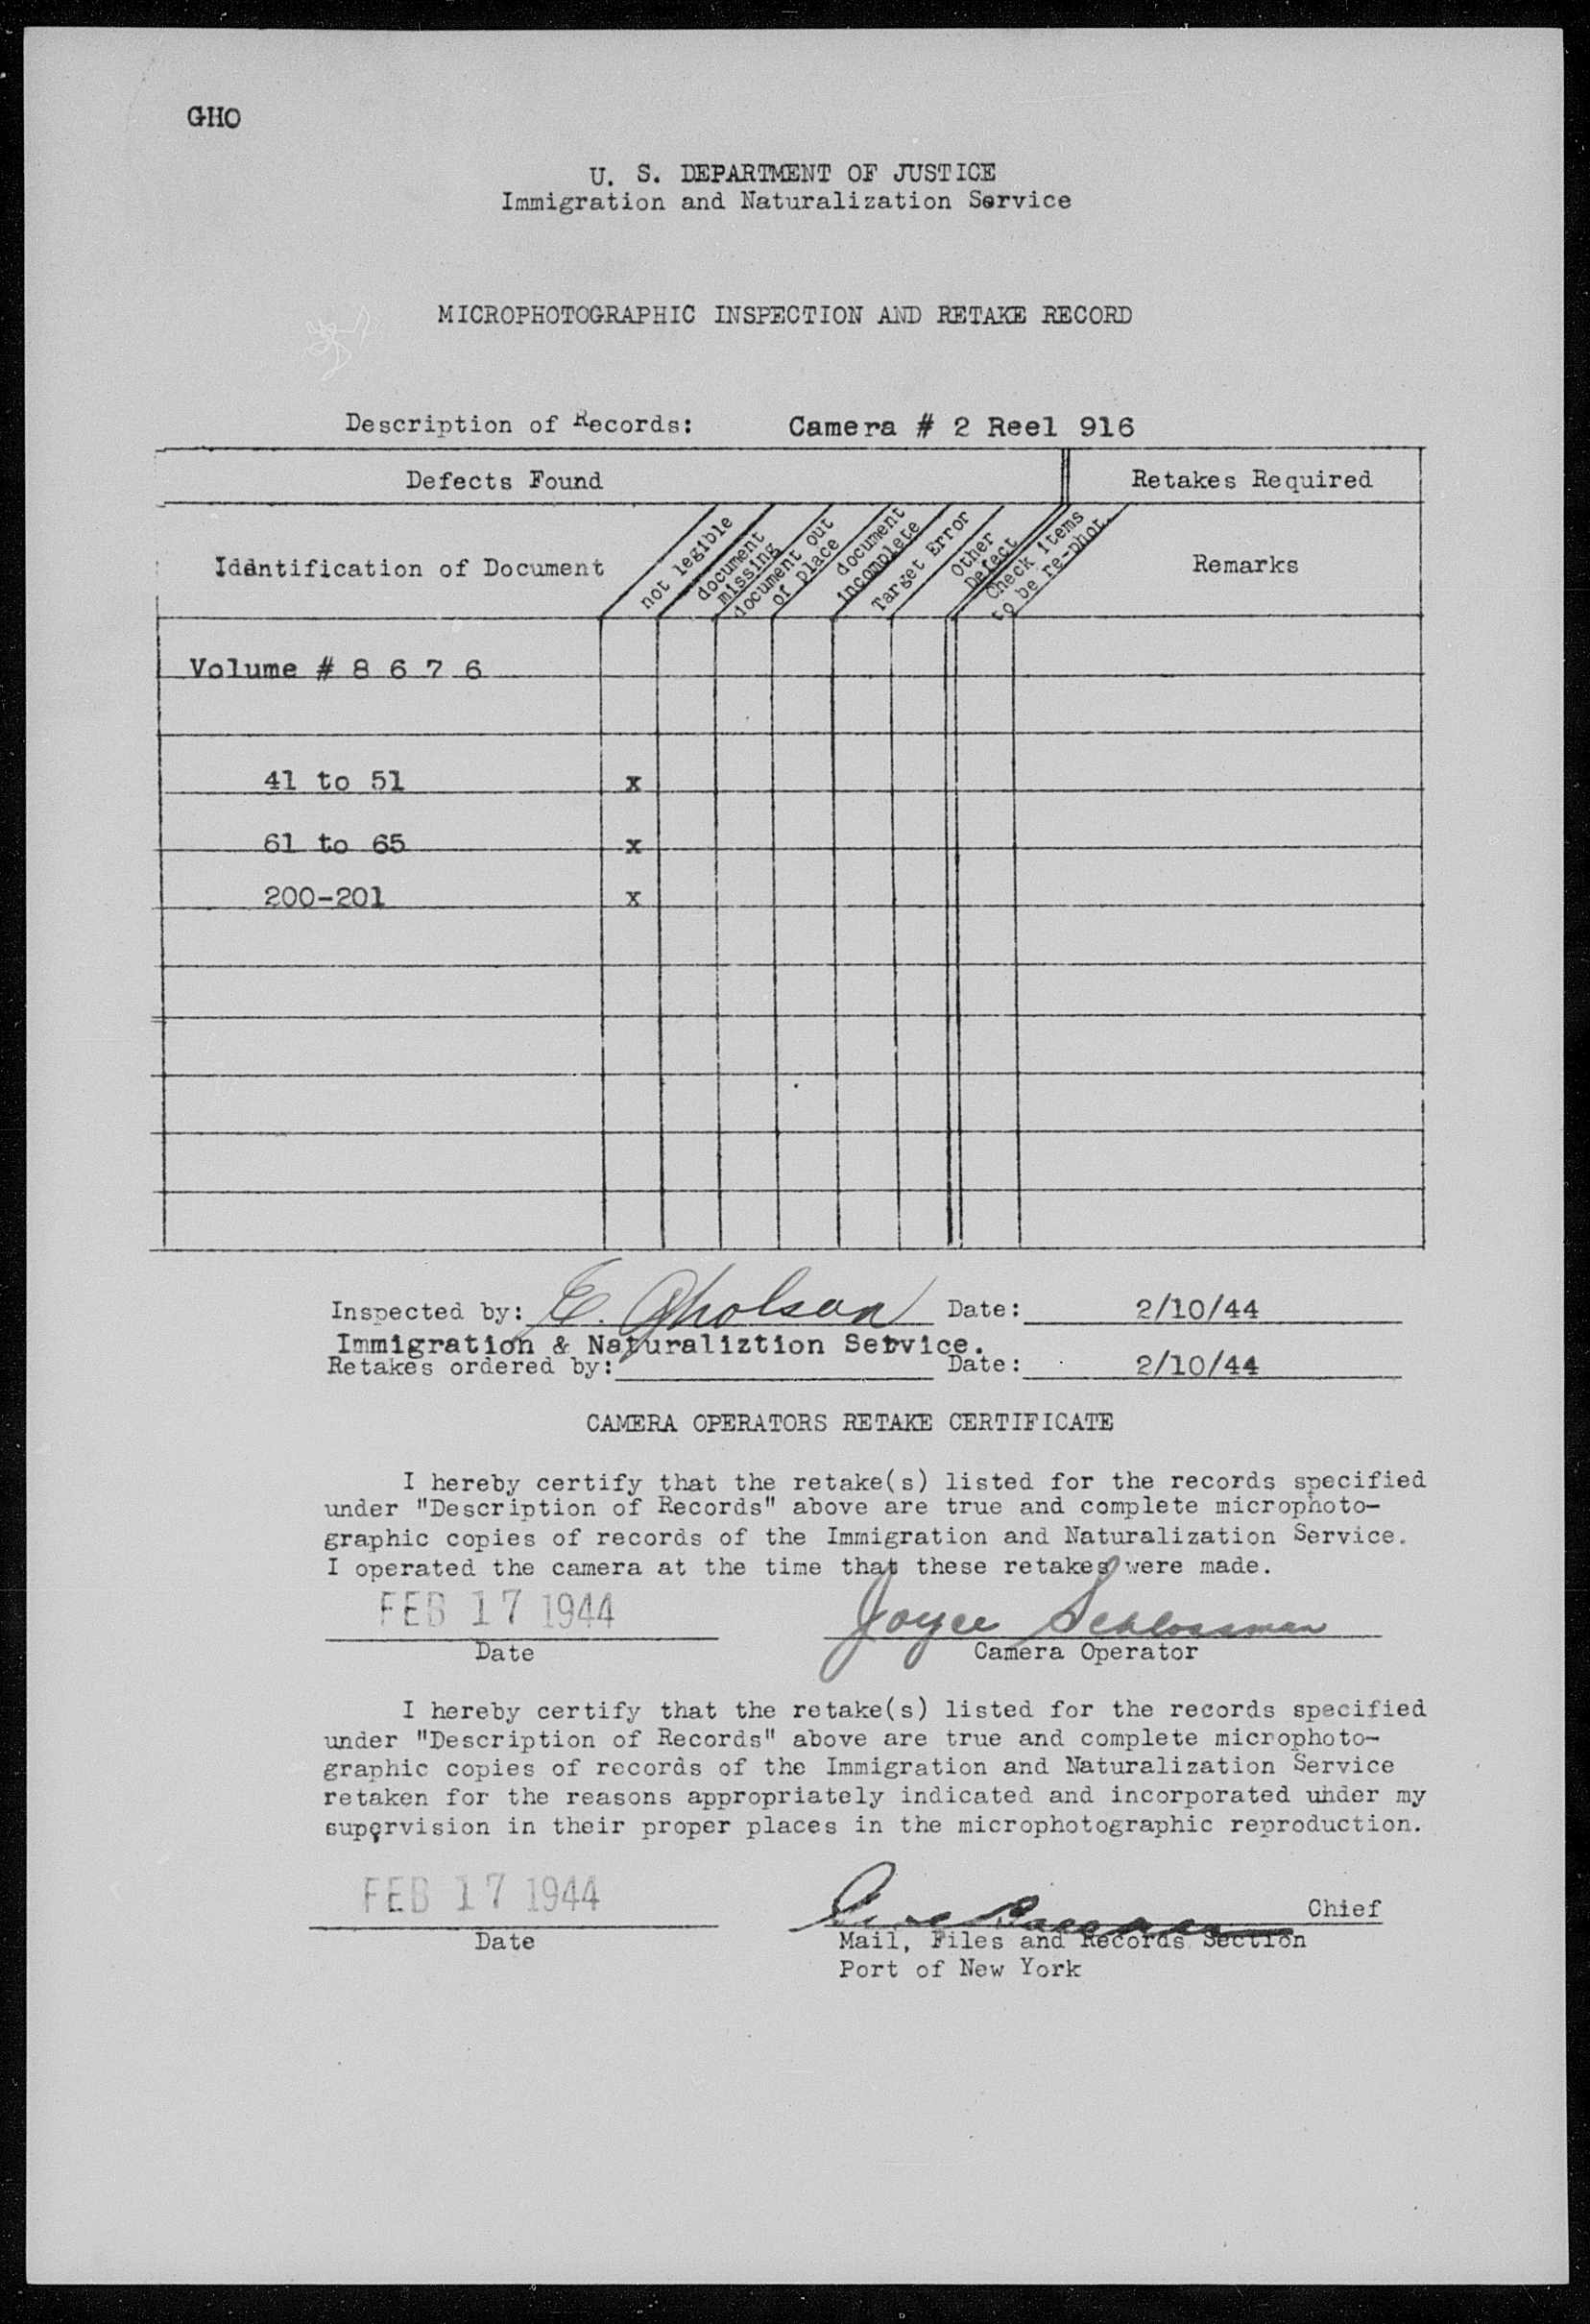 GHO
U. S. DEPARTMENT OF JUSTICE
Immigration and Naturalization Service
MICROPHOTOGRAPHIC INSPECTION AND RETAKE RECORD
Description of Records: Camera # 2 Reel 916
Defects Found Retakes Required
Identification of Document
not legible
document missing
document out of place
document incomplete
Target Error
Other Defect
Check items to be re-phot.
Remarks
Volume # 8 6 7 6
41 to 51 x
61 to 65 x
200-201 x
Inspected by: E. Gholson Date: 2/10/44
Immigration & Naturaliztion Service.
Retakes ordered by: Date: 2/10/44
CAMERA OPERATORS RETAKE CERTIFICATE
I hereby certify that the retake(s) listed for the records specified
under "Description of Records" above are true and complete microphoto-
graphic copies of records of the Immigration and Naturalization Service.
I operated the camera at the time that these retakes were made.
FEB 17 1944 Joyce Schlossman
Date Camera Operator
I hereby certify that the retake(s) listed for the records specified
under "Description of Records" above are true and complete microphoto-
graphic copies of records of the Immigration and Naturalization Service
retaken for the reasons appropriately indicated and incorporated under my
supervision in their proper places in the microphotographic reproduction.
FEB 17 1944 Chief
Date Mail, Files and Records Section
Port of New York